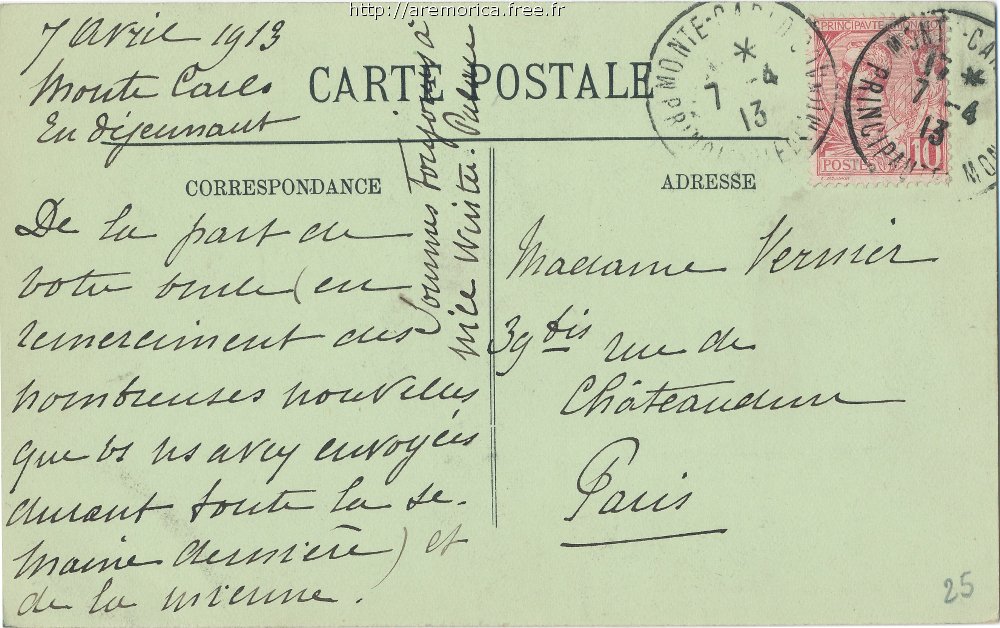 http://aremorica.free.fr
7 Avril 1913
Monte Carlo
En déjeunant
CARTE POSTALE
CORRESPONDANCE
ADRESSE
De la part de
votre oncle (en
remerciment des
nombreuses nouvelles
que vs ns avez envoyées
durant toute la se-
maine dernière) et
de la mienne.
Sommes toujours à
Nice Winter-Palace
Madame Vernier
39 bis rue de
Châteaudun
Paris
MONTE-CARLO
7 -4
13
PRINCIPAUTÉ DE MONACO
10
POSTES
MONTE-CA
7 -4
13
PRINCIPAU
MON
25